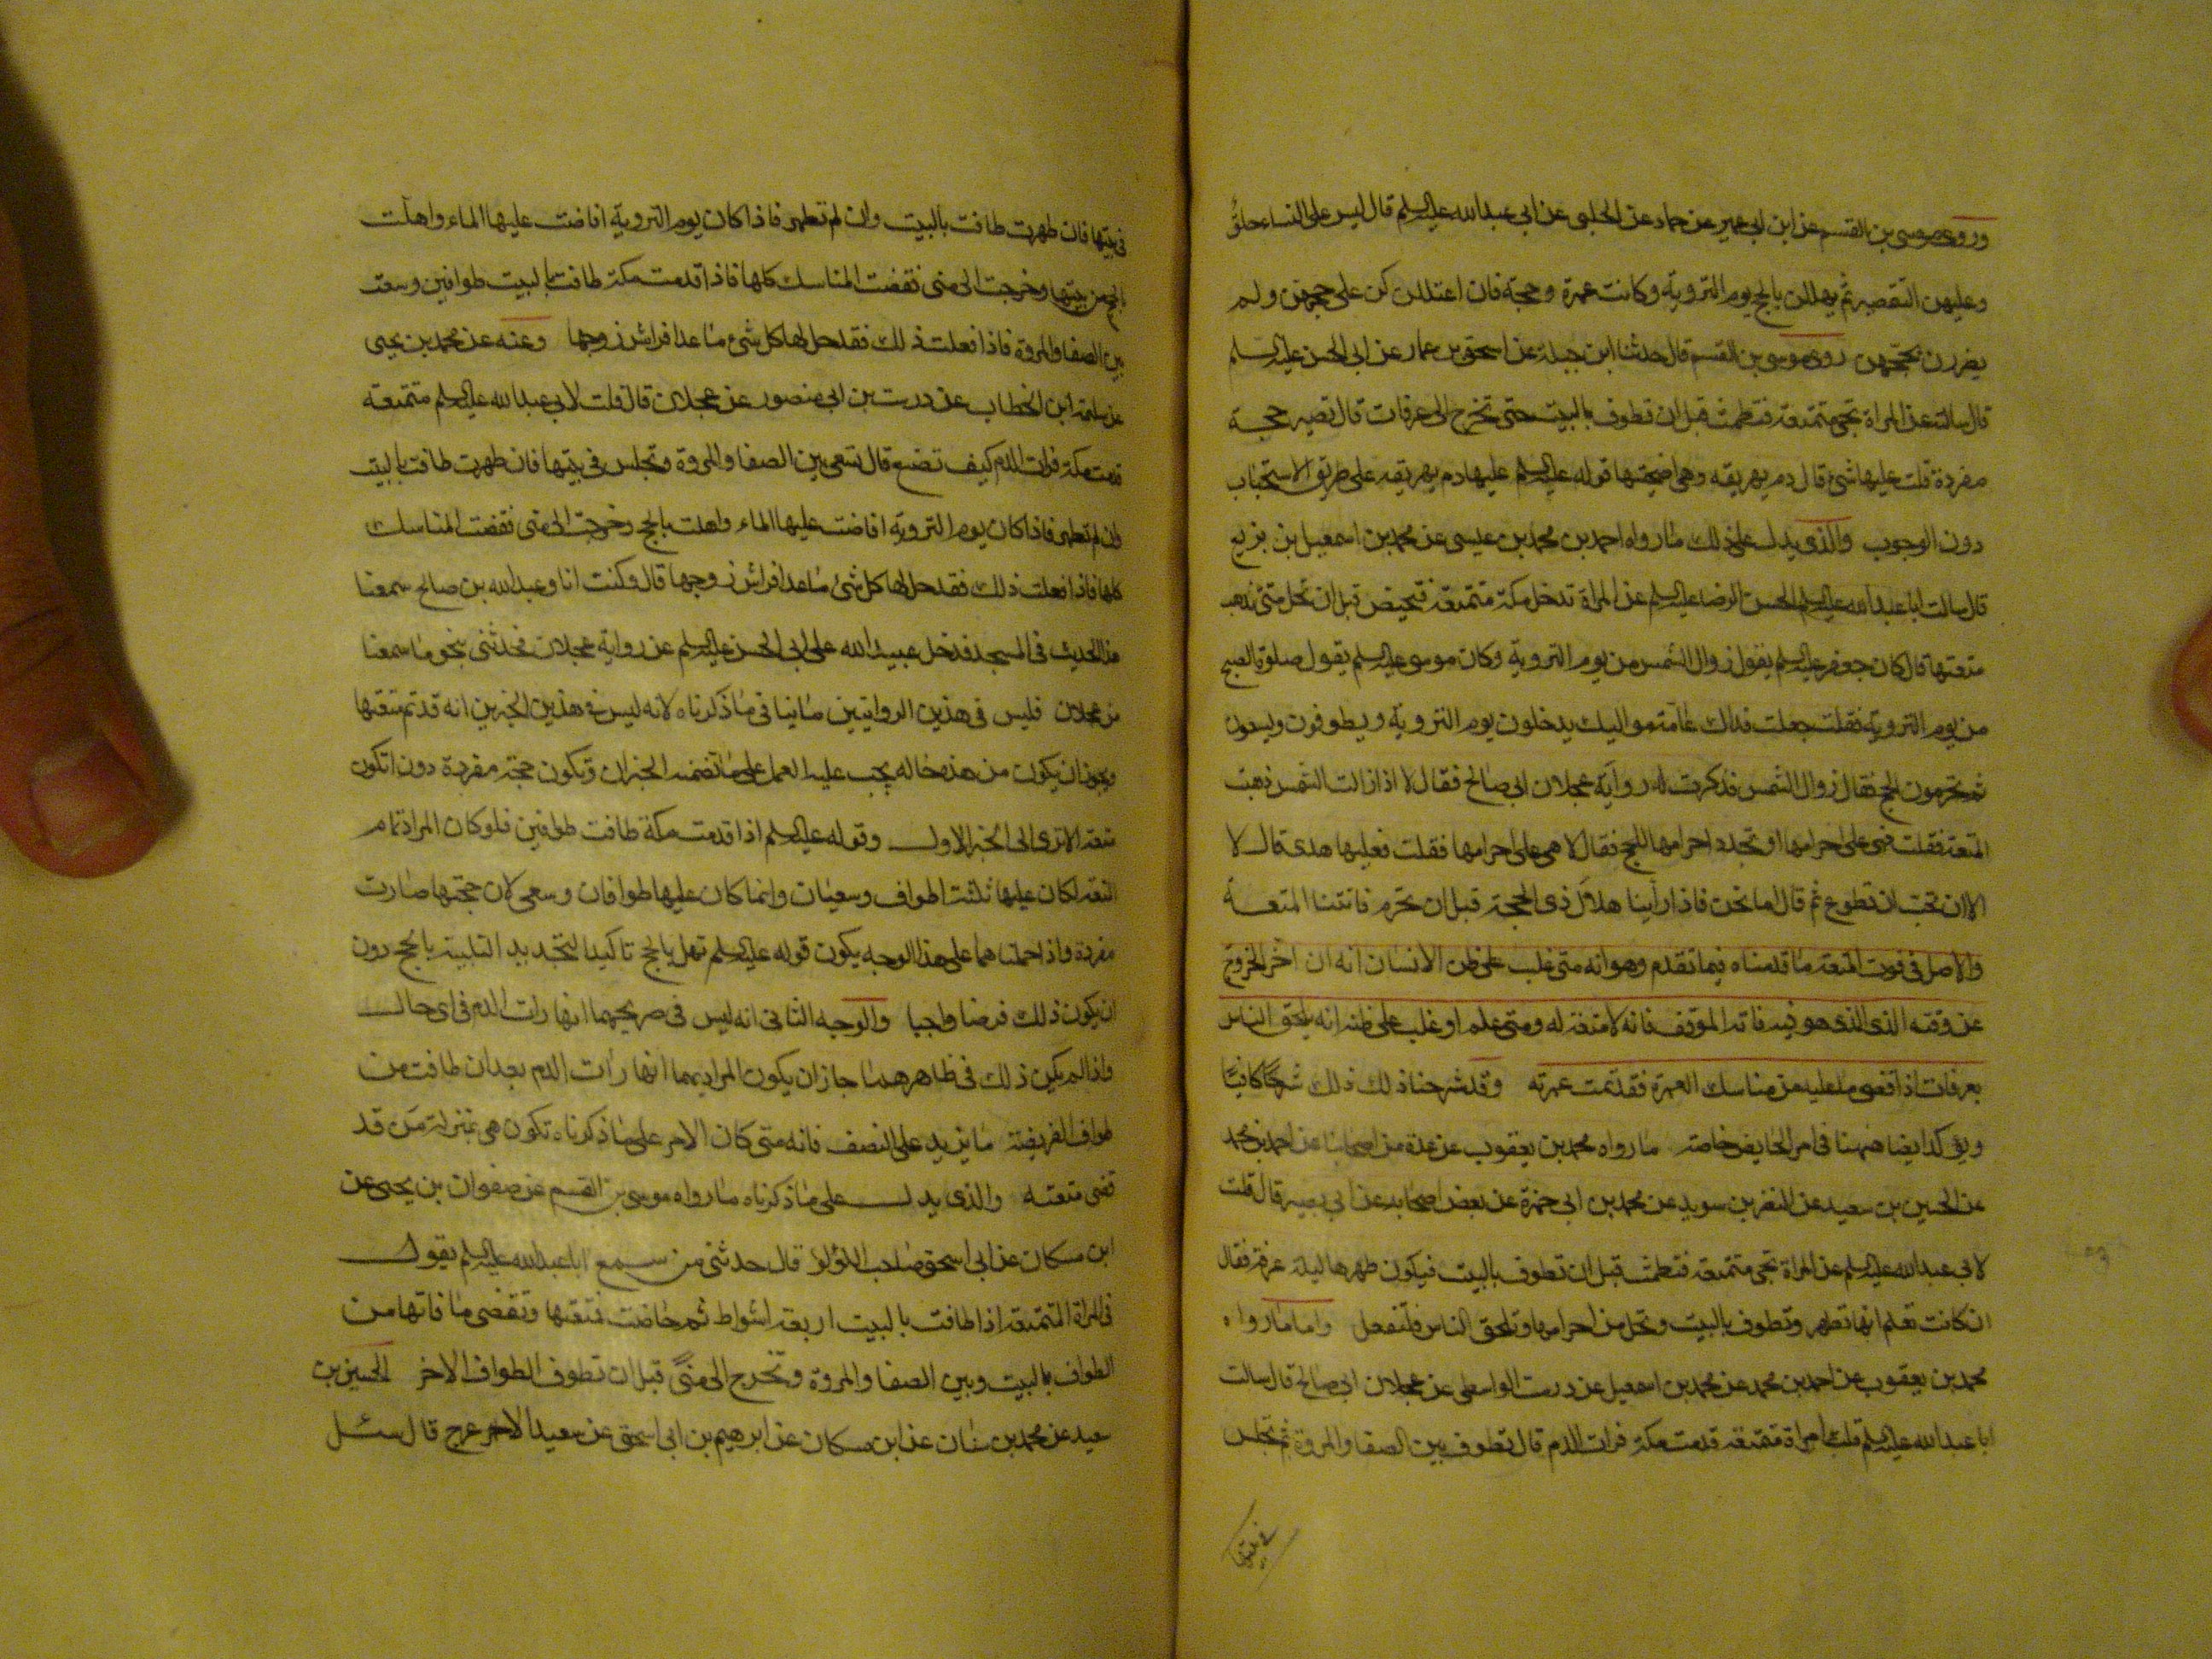 وروى موسى بن القسم عن ابن ابى عمير عن حماد عن الحلبى عن ابى عبد الله عليه السلم قال ليس على النساء حلق
وعليهن التقصير ثم يهللن بالحج يوم التروية وكانت عمرة وحجة فان اعتللن كن على حجهن ولم
يضررن بحجهن روى موسى بن القسم قال حدثنا ابن جبلة عن اسحق بن عمار عن ابى الحسن عليه السلم
قال سالته عن المراة تجى متمتعة فتطمث قبل ان تطوف بالبيت حتى تخرج الى عرفات قال تصير حجة
مفردة قلت عليها شئ قال دم يهريقه وهى اضحيتها قوله عليه السلم عليها دم يهريقه على طريق الاستحباب
دون الوجوب والذى يدل على ذلك ما رواه احمد بن محمد بن عيسى عن محمد بن اسمعيل بن بزيع
قال سالت ابا عبد الله عليه السلم الحسن الرضا عليه السلم عن المراة تدخل مكة متمتعة فتحيض قبل ان تحل متى تذهب
متعتها قال كان جعفر عليه السلم يقول زوال الشمس من يوم التروية وكان موسى عليه السلم يقول صلوة الصبح
من يوم التروية فقلت جعلت فداك عامة مواليك يدخلون يوم التروية ويطوفون ويسعون
ثم يحرمون بالحج فقال زوال الشمس فذكرت له رواية عجلان ابى صالح فقال لا اذا زالت الشمس ذهبت
المتعة فقلت فهى على احرامها او تجدد احرامها للحج فقال لا هى على احرامها فقلت فعليها هدى قال لا
الا ان تحب ان تطوع ثم قال اما نحن فاذا راينا هلال ذى الحجة قبل ان نحرم فاتتنا المتعة
والاصل فى فوت المتعة ما قدمناه فيما تقدم وهو انه متى غلب على ظن الانسان انه ان اخر الخروج
عن وقته الذى الذى هو فيه فاته الموقف فانه لا متعة له ومتى علم او غلب على ظنه انه يلحق الناس
بعرفات اذا قضى ما عليه من مناسك العمرة فقد تمت عمرته وقد شرحنا ذلك ذلك شرحا كافيا
ويؤكد ايضا ههنا فى امر الحايض خاصة ما رواه محمد بن يعقوب عن عدة من اصحابنا عن احمد بن محمد
عن الحسين بن سعيد عن النضر بن سويد عن محمد بن ابى حمزة عن بعض اصحابه عن ابى بصير قال قلت
لابى عبد الله عليه السلم عن المراة تجى متمتعة فتطمث قبل ان تطوف بالبيت فيكون طهرها ليلة عرفة فقال
ان كانت تعلم انها تطهر وتطوف بالبيت وتحل من احرامها وتلحق الناس فلتفعل واما ما رواه
محمد بن يعقوب عن احمد بن محمد عن محمد بن اسمعيل عن درست الواسطى عن عجلان ابى صالح قال سالت
ابا عبد الله عليه السلم قلت امراة متمتعة قدمت مكة فرات الدم قال تطوف بين الصفا والمروة ثم تجلس
فى بيتها
فى بيتها فان طهرت طافت بالبيت وان لم تطهر فاذا كان يوم التروية افاضت عليها الماء واهلت
بالحج من بيتها وخرجت الى منى فقضت المناسك كلها فاذا قدمت مكة طافت بالبيت طوافين وسعت
بين الصفا والمروة فاذا فعلت ذلك فقد حل لها كل شئ ما عدا فراش زوجها وعنه عن محمد بن يحيى
عن سلمة ابن الخطاب عن درست بن ابى منصور عن عجلان قال قلت لابى عبد الله عليه السلم متمتعة
قدمت مكة فرات الدم كيف تصنع قال تسعى بين الصفا والمروة وتجلس فى بيتها فان طهرت طافت بالبيت
وان لم تطهر فاذا كان يوم التروية افاضت عليها الماء واهلت بالحج وخرجت الى منى فقضت المناسك
كلها فاذا فعلت ذلك فقد حل لها كل شئ ما عدا فراش زوجها قال وكنت انا وعبد الله بن صالح سمعنا
هذا الحديث فى المسجد فدخل عبيد الله على ابى الحسن عليه السلم عن رواية عجلان فحدثنى بنحو ما سمعنا
من عجلان فليس فى هذين الروايتين ما ينافى ما ذكرناه لانه ليس فى هذين الخبرين انه قد تم متعتها
ويجوز ان يكون من هذه حاله يجب عليه العمل على ما تضمنه الخبران وتكون حجة مفردة دون ان تكون
متعة الا ترى الى الخبر الاول وقوله عليه السلم اذا قدمت مكة طافت طوافين فلو كان المراد تمام
المتعة لكان عليها ثلثة اطواف وسعيان وانما كان عليها طوافان وسعى لان حجتها صارت
مفردة واذا حملناهما على هذا الوجه يكون قوله عليه السلم تهل بالحج تاكيدا لتجديد التلبية بالحج دون
ان يكون ذلك فرضا واجبا والوجه الثانى انه ليس فى صريحهما انها رات الدم فى اى حال
واذا لم يكن ذلك فى ظاهرهما جاز ان يكون المراد بهما انها رات الدم بعد ان طافت من
طواف الفريضة ما يزيد على النصف فانه متى كان الامر على ما ذكرناه تكون هى بمنزلة من قد
قضى متعته والذى يدل على ما ذكرناه ما رواه موسى بن القسم عن صفوان بن يحيى عن
ابن مسكان عن ابى اسحق صاحب اللؤلؤ قال حدثنى من سمع ابا عبد الله عليه السلم يقول
فى المراة المتمتعة اذا طافت بالبيت اربعة اشواط ثم حاضت فمتعتها وتقضى ما فاتها من
الطواف بالبيت وبين الصفا والمروة وتخرج الى منى قبل ان تطوف الطواف الاخر الحسين بن
سعيد عن محمد بن سنان عن ابن مسكان عن ابرهيم بن ابى اسحق عن سعيد الاعرج قال سئل